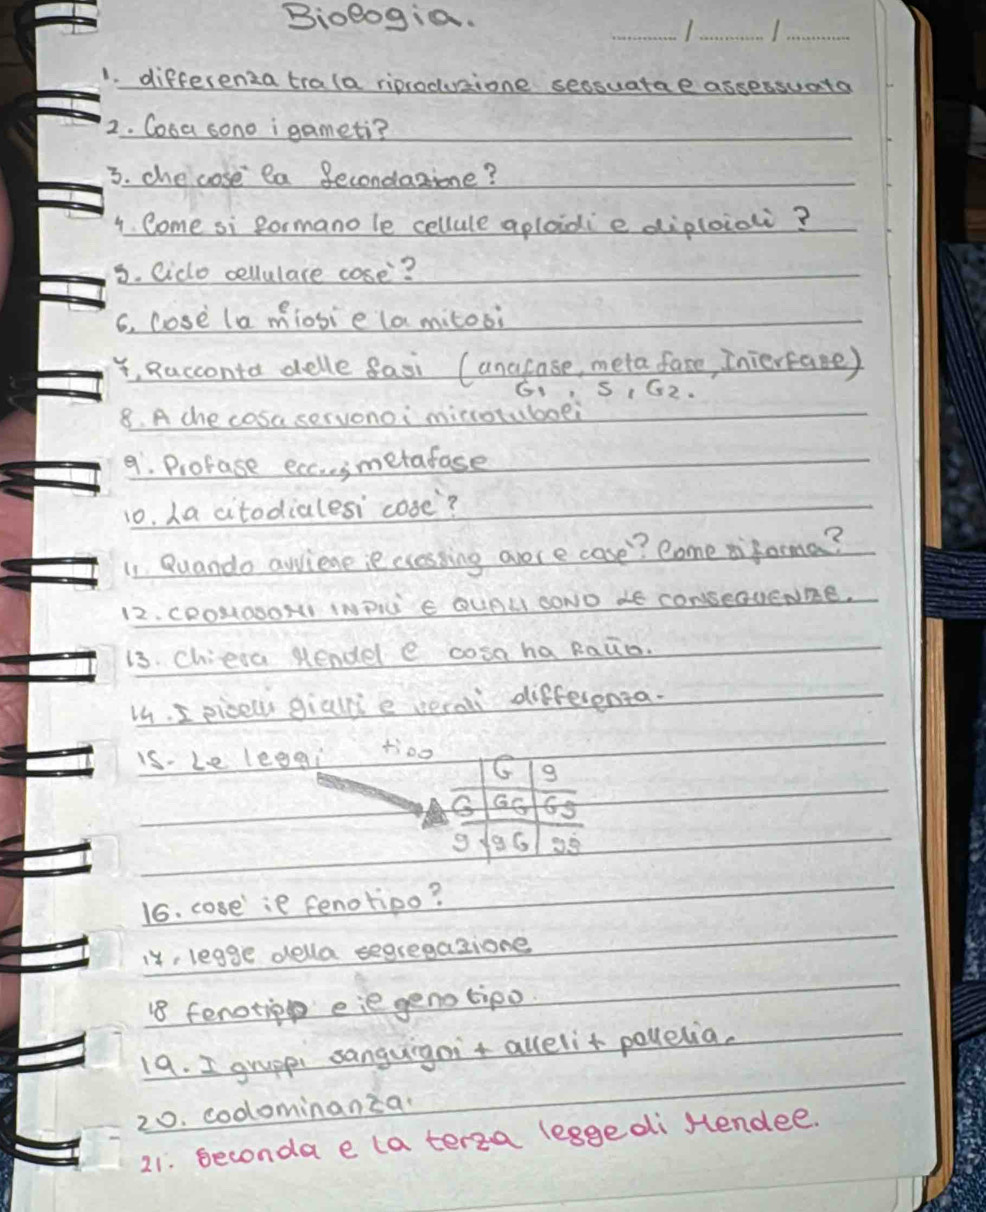 Biologia.
1. differenza tra la riproduzione sessuata e assessuata
2. Cosa sono i gameti?
3. che cose' la fecondazione?
4. Come si formano le cellule aploidi e diploidi?
5. Ciclo cellulare cose'?
6. Cosè la meiosi e la mitosi
7. Racconta delle fasi (anafase, metafase, Interfase)
G1, S, G2.
8. A che cosa servono i microtuboli
9. Profase ecc...; metafase
10. La citodialesi cose'?
11. Quando avviene il crossing over e cose'? Come si forma?
12. CROMOSOMI IN PIÙ E QUALI SONO LE CONSEGUENZE.
13. Chi era Mendel e cosa ha fatto.
14. I piselli gialli e verdi differenza.
15. Le leggi tipo
G g
G GG Gg
g gG gg
16. cose' il fenotipo?
17. legge della segregazione
18 fenotipo e il genotipo.
19. I gruppi sanguigni + alleli +
20. codominanza.
21. Seconda e la terza legge di Mendel.